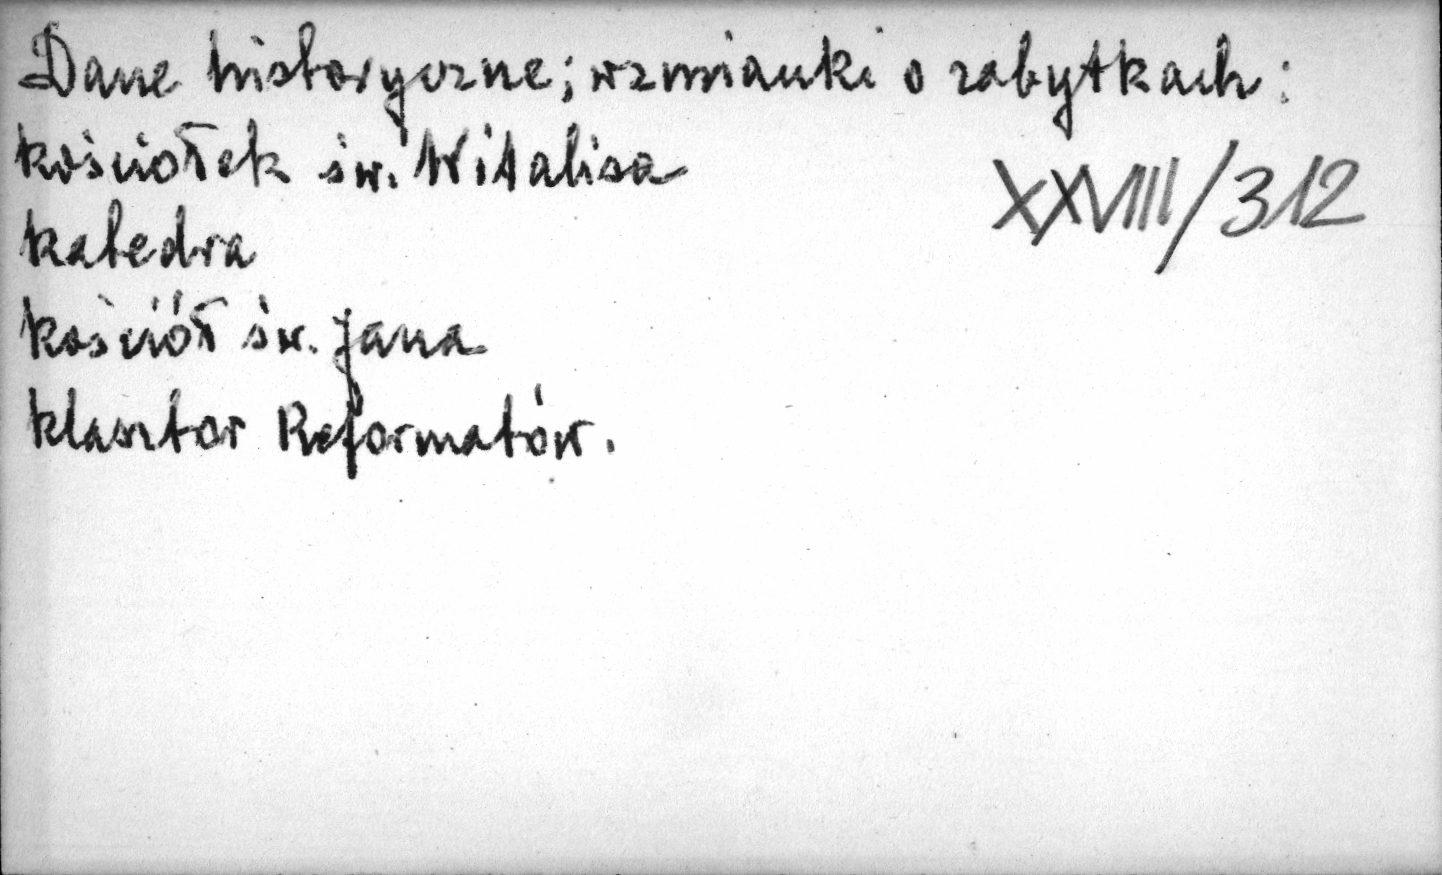 Dane historyczne; wzmianki o zabytkach:
kościołek św. Witalisa
XXVIII/312
katedra
kościół św. Jana
klasztor Reformatów.